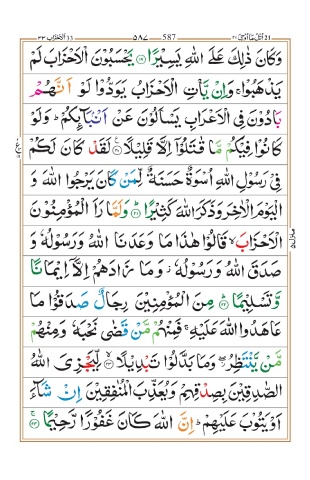 اتل مااوحی ٢١ 587 ٥٨٧ الاحزاب ٣٣
وَكَانَ ذٰلِكَ عَلَى اللّٰهِ يَسِيْرًا ﴿١٩﴾ يَحْسَبُوْنَ الْاَحْزَابَ لَمْ
يَذْهَبُوْا ۚ وَاِنْ يَّاْتِ الْاَحْزَابُ يَوَدُّوْا لَوْ اَنَّهُمْ
بَادُوْنَ فِى الْاَعْرَابِ يَسْاَلُوْنَ عَنْ اَنْۢبَآئِكُمْ ؕ وَلَوْ
كَانُوْا فِيْكُمْ مَّا قٰتَلُوْۤا اِلَّا قَلِيْلًا ﴿٢٠﴾ لَقَدْ كَانَ لَكُمْ
فِىْ رَسُوْلِ اللّٰهِ اُسْوَةٌ حَسَنَةٌ لِّمَنْ كَانَ يَرْجُوا اللّٰهَ وَ
الْيَوْمَ الْاٰخِرَ وَذَكَرَ اللّٰهَ كَثِيْرًا ﴿٢١﴾ وَلَمَّا رَاَ الْمُؤْمِنُوْنَ
الْاَحْزَابَ ۙ قَالُوْا هٰذَا مَا وَعَدَنَا اللّٰهُ وَرَسُوْلُهٗ وَ
صَدَقَ اللّٰهُ وَرَسُوْلُهٗ ۚ وَمَا زَادَهُمْ اِلَّاۤ اِيْمَانًا
وَّتَسْلِيْمًا ﴿٢٢﴾ مِنَ الْمُؤْمِنِيْنَ رِجَالٌ صَدَقُوْا مَا
عَاهَدُوا اللّٰهَ عَلَيْهِ ۚ فَمِنْهُمْ مَّنْ قَضٰى نَحْبَهٗ وَمِنْهُمْ
مَّنْ يَّنْتَظِرُ ۖ وَمَا بَدَّلُوْا تَبْدِيْلًا ﴿٢٣﴾ لِّيَجْزِىَ اللّٰهُ
الصّٰدِقِيْنَ بِصِدْقِهِمْ وَيُعَذِّبَ الْمُنٰفِقِيْنَ اِنْ شَآءَ
اَوْ يَتُوْبَ عَلَيْهِمْ ؕ اِنَّ اللّٰهَ كَانَ غَفُوْرًا رَّحِيْمًا ﴿٢٤﴾